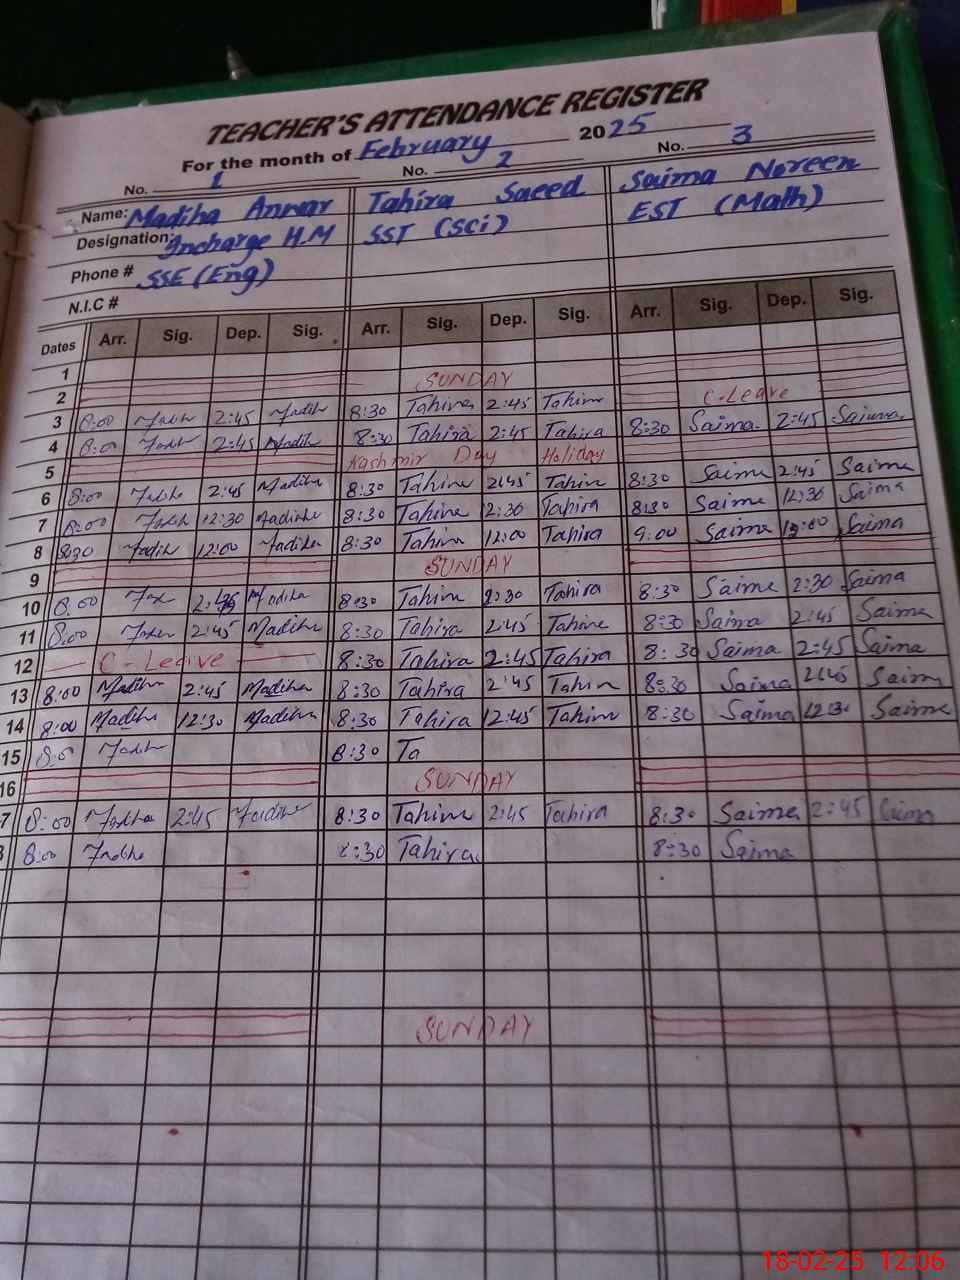 TEACHER'S ATTENDANCE REGISTER
For the month of February 2025
No. 1 No. 2 No. 3
Name: Madiha Anwar Tahira Saeed Saima Noreen
Designation: Incharge H.M SST (Sci) EST (Math)
Phone # SSE (Eng)
N.I.C #
Dates Arr. Sig. Dep. Sig. Arr. Sig. Dep. Sig. Arr. Sig. Dep. Sig.
1
2 SUNDAY
C-Leave
3 8:00 Madih 2:45 Madih 8:30 Tahira 2:45 Tahira
4 8:00 Madih 2:45 Madih 8:30 Tahira 2:45 Tahira 8:30 Saima 2:45 Saima
5 Kashmir Day Holiday
6 8:00 2:45 Madiha 8:30 Tahira 2:45 Tahira 8:30 Saima 2:45 Saima
7 8:00 12:30 Madiha 8:30 Tahira 12:30 Tahira 8:30 Saima 12:30 Saima
8 8:30 Madih 12:00 Madiha 8:30 Tahira 12:00 Tahira 9:00 Saima Saima
9 SUNDAY
10 8:00 Madiha 8:30 Tahira 2:30 Tahira 8:30 Saima 2:30 Saima
11 8:00 2:45 Madiha 8:30 Tahira 2:45 Tahira 8:30 Saima 2:45 Saima
12 C-Leave 8:30 Tahira 2:45 Tahira 8:30 Saima 2:45 Saima
13 8:00 Madiha 2:45 Madiha 8:30 Tahira 2:45 Tahira 8:30 Saima 2:45 Saima
14 8:00 Madiha 12:30 Madiha 8:30 Tahira 12:45 Tahira 8:30 Saima 12:30 Saima
15 8:0 Madih 8:30 Ta
16 SUNDAY
7 8:00 Madiha 2:45 Madiha 8:30 Tahira 2:45 Tahira 8:30 Saima 2:45 Saima
8:00 8:30 Tahira 8:30 Saima
SUNDAY
18-02-25 12:06